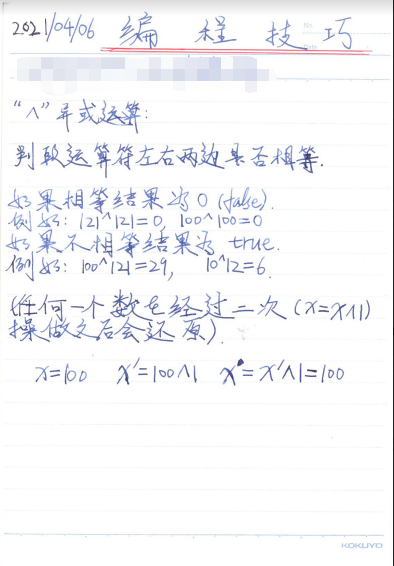 2021/04/06 编程技巧
"∧"异或运算:
判断运算符左右两边是否相等.
如果相等结果为0(false).
例如: 121^121=0, 100^100=0
如果不相等结果为 true.
例如: 100^121=29, 10^12=6.
(任何一个数在经过二次(x=x∧1)
操做之后会还原).
x=100 x'=100∧1 x"=x'∧1=100
KOKUYO